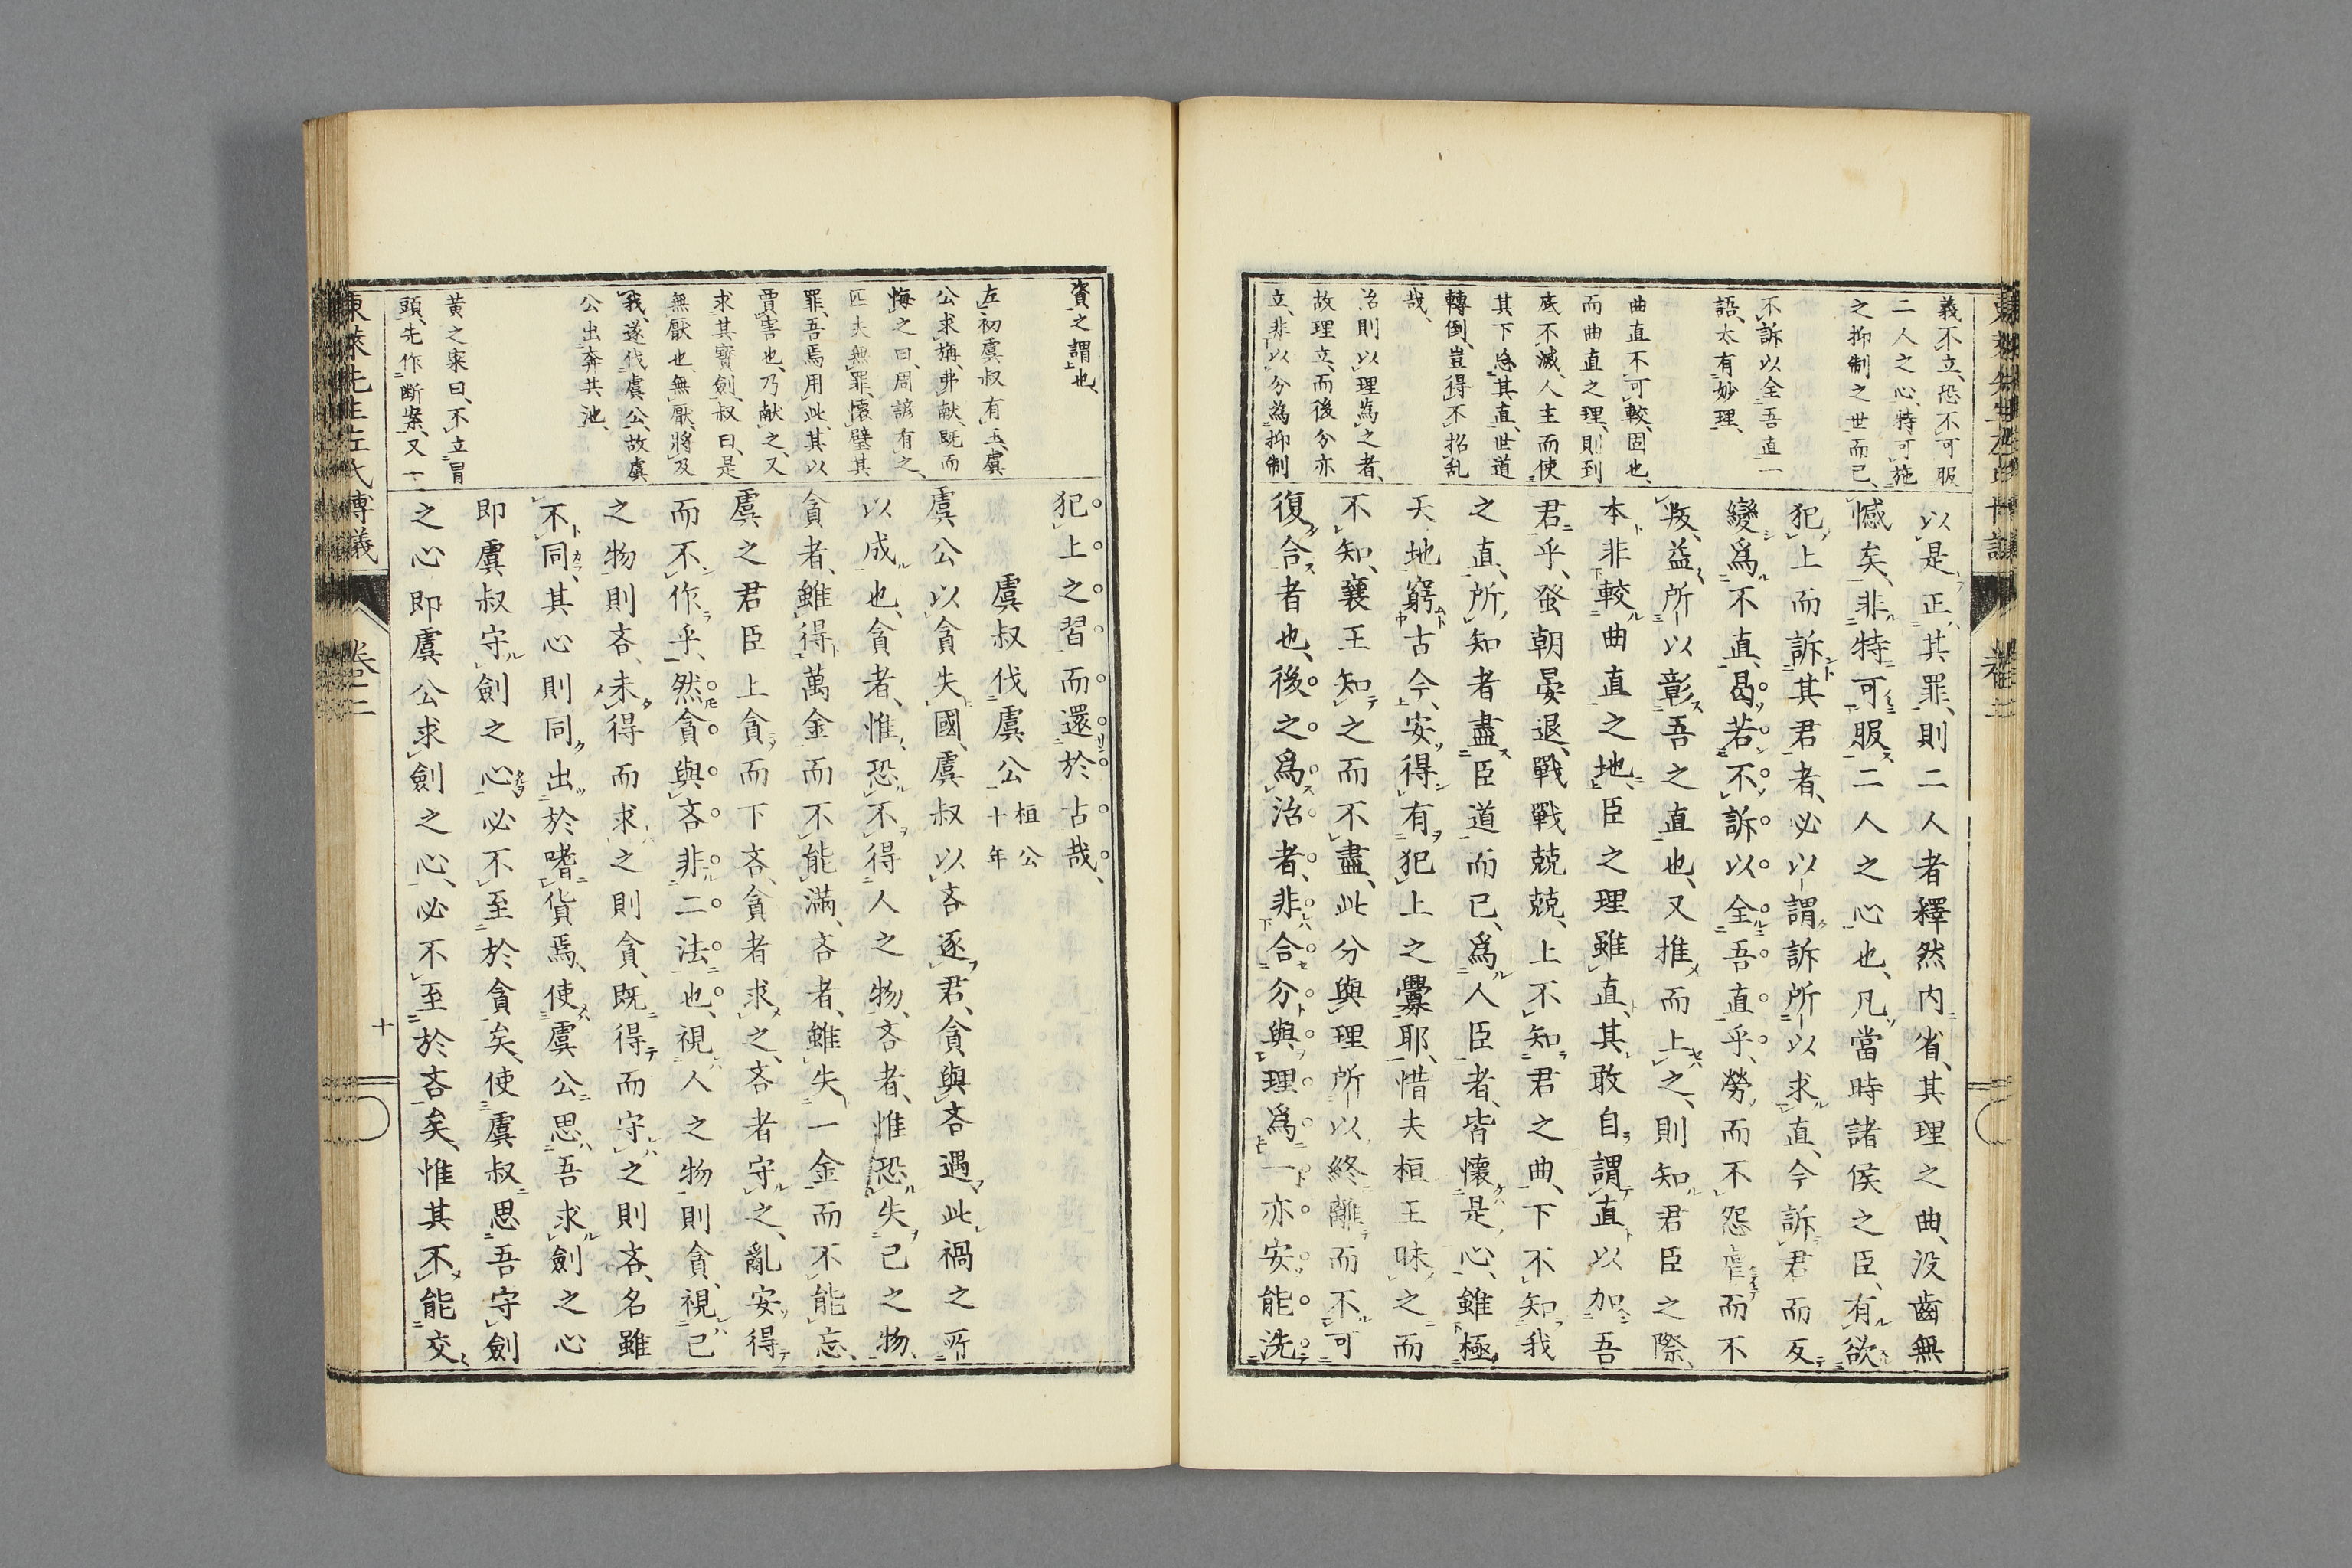 東萊先生左氏博議
卷二
義不立、恐不可服
二人之心、特可施
之抑制之世而已、
不訴以全吾直一
語、太有妙理、
曲直不可較、固也、
而曲直之理、則到
底不滅、人主而使
其下怠其直、世道
轉倒、豈得不招乱
哉、
治則以理為之者、
故理立、而後分亦
立、非以分為抑制
以是正其罪、則二人者釋然内省、其理之曲、没齒無
憾矣、非特可服二人之心也、凡當時諸侯之臣、有欲
犯上而訴其君者、必以謂訴所以求直、今訴君而反
變爲不直、曷若不訴以全吾直乎、勞而不怨虐而不
叛、益所以彰吾之直也、又推而上之、則知君臣之際、
本非較曲直之地、臣之理雖直、其敢自謂直以加吾
君乎、蚤朝晏退、戰戰兢兢、上不知君之曲、下不知我
之直、所知者盡臣道而已、爲人臣者、皆懷是心、雖極
天地窮古今、安得有犯上之釁耶、惜夫桓王昧之而
不知、襄王知之而不盡、此分與理所以終離而不可
復合者也、後之爲治者、非合分與理爲一亦安能洗
資之謂也、
左初虞叔有玉、虞
公求旃、弗献、既而
悔之曰、周諺有之、
匹夫無罪、懷璧其
罪、吾焉用此、其以
賈害也、乃献之、又
求其寶劍、叔曰、是
無厭也、無厭、將及
我、遂伐虞公、故虞
公出奔共池、
黄之寀曰、不立冒
頭、先作断案、又一
犯上之習而還於古哉、
虞叔伐虞公 桓公十年
虞公以貪失國、虞叔以吝逐君、貪與吝遇此禍之所
以成也、貪者、惟恐不得人之物、吝者、惟恐失己之物、
貪者、雖得萬金而不能滿、吝者、雖失一金而不能忘、
虞之君臣上貪而下吝、貪者求之、吝者守之、亂安得
而不作乎、然貪與吝非二法也、視人之物則貪、視己
之物則吝、未得而求之則貪、既得而守之則吝、名雖
不同、其心則同出於嗜貨焉、使虞公思吾求劍之心
即虞叔守劍之心必不至於貪矣、使虞叔思吾守劍
之心即虞公求劍之心、必不至於吝矣、惟其不能交
東萊先生左氏博議
卷之二
十